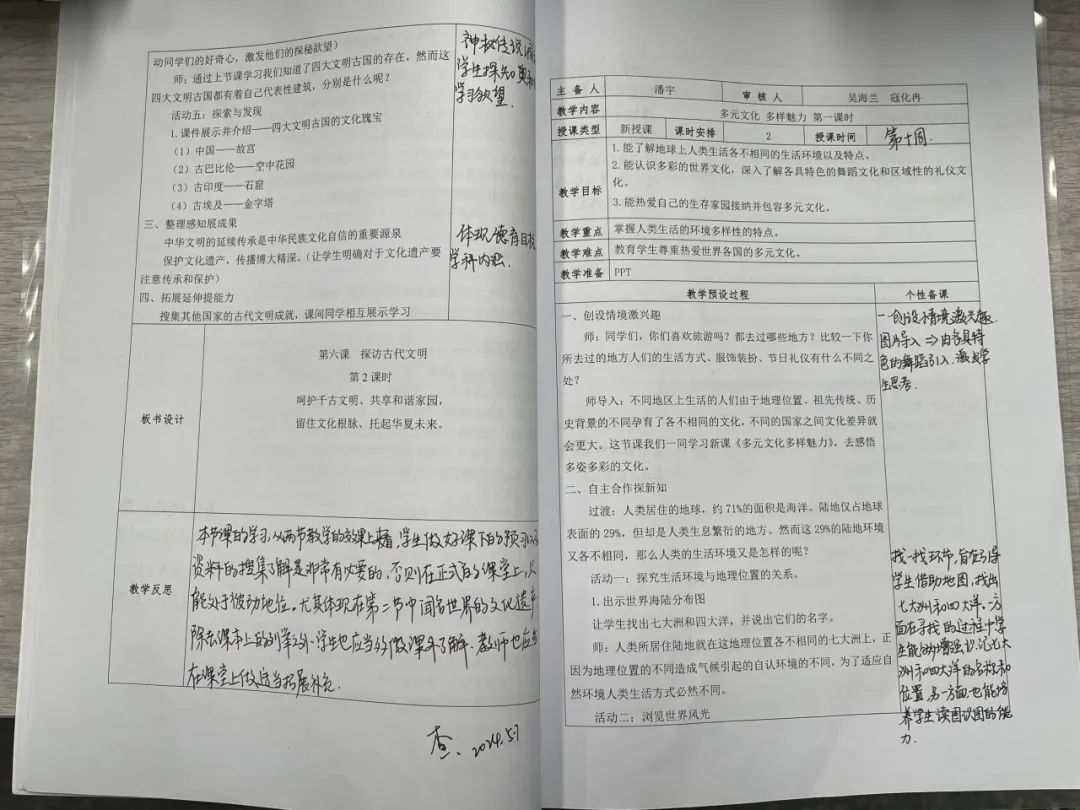 动同学们的好奇心，激发他们的探秘欲望）
师：通过上节课学习我们知道了四大文明古国的存在，然而这
四大文明古国都有着自己代表性建筑，分别是什么呢？
活动五：探索与发现
1.课件展示并介绍——四大文明古国的文化瑰宝
（1）中国——故宫
（2）古巴比伦——空中花园
（3）古印度——石窟
（4）古埃及——金字塔
三、整理感知展成果
中华文明的延续传承是中华民族文化自信的重要源泉
保护文化遗产，传播博大精深。（让学生明确对于文化遗产要
注意传承和保护）
四、拓展延伸提能力
搜集其他国家的古代文明成就，课间同学相互展示学习
神秘传说
学生探知
学习欲望.
体现德育目标
学科内容.
板书设计
第六课 探访古代文明
第2课时
呵护千古文明、共享和谐家园，
留住文化根脉、托起华夏未来。
教学反思
本节课的学习，从两节教学的效果上来看，学生做好课下的预习
资料的搜集了解是非常有必要的，否则在正式的课堂上，只
能处于被动地位，尤其体现在第二节中闻名世界的文化遗产
除去课本上的列举之外，学生也应当多做课外了解，教师也应当
在课堂上做适当拓展补充.
查. 2024.5.7
主备人 潘宇 审核人 吴海兰 寇化冉
教学内容 多元文化 多样魅力 第一课时
授课类型 新授课 课时安排 2 授课时间 第十周.
教学目标
1.能了解地球上人类生活各不相同的生活环境以及特点。
2.能认识多彩的世界文化，深入了解各具特色的舞蹈文化和区域性的礼仪文
化。
3.能热爱自己的生存家园接纳并包容多元文化。
教学重点 掌握人类生活的环境多样性的特点。
教学难点 教育学生尊重热爱世界各国的多元文化。
教学准备 PPT
教学预设过程 个性备课
一、创设情境激兴趣
师：同学们，你们喜欢旅游吗？都去过哪些地方？比较一下你
所去过的地方人们的生活方式、服饰装扮、节日礼仪有什么不同之
处？
师导入：不同地区上生活的人们由于地理位置、祖先传统、历
史背景的不同孕育了各不相同的文化，不同的国家之间文化差异就
会更大。这节课我们一同学习新课《多元文化多样魅力》，去感悟
多姿多彩的文化。
二、自主合作探新知
过渡：人类居住的地球，约71%的面积是海洋。陆地仅占地球
表面的29%，但却是人类生息繁衍的地方。然而这29%的陆地环境
又各不相同，那么人类的生活环境又是怎样的呢？
活动一：探究生活环境与地理位置的关系。
1.出示世界海陆分布图
让学生找出七大洲和四大洋，并说出它们的名字。
师：人类所居住陆地就在这地理位置各不相同的七大洲上，正
因为地理位置的不同造成气候引起的自认环境的不同，为了适应自
然环境人类生活方式必然不同。
活动二：浏览世界风光
一创设情境激兴趣.
图片导入⇒由各具特
色的舞蹈引入，激发学
生思考.
找一找环节，旨在引导
学生借助地图，找出
七大洲和四大洋，一方
面在寻找的过程中学
生能够增强记忆七大
洲和四大洋的名称和
位置，另一方面也能培
养学生读图识图的能
力.